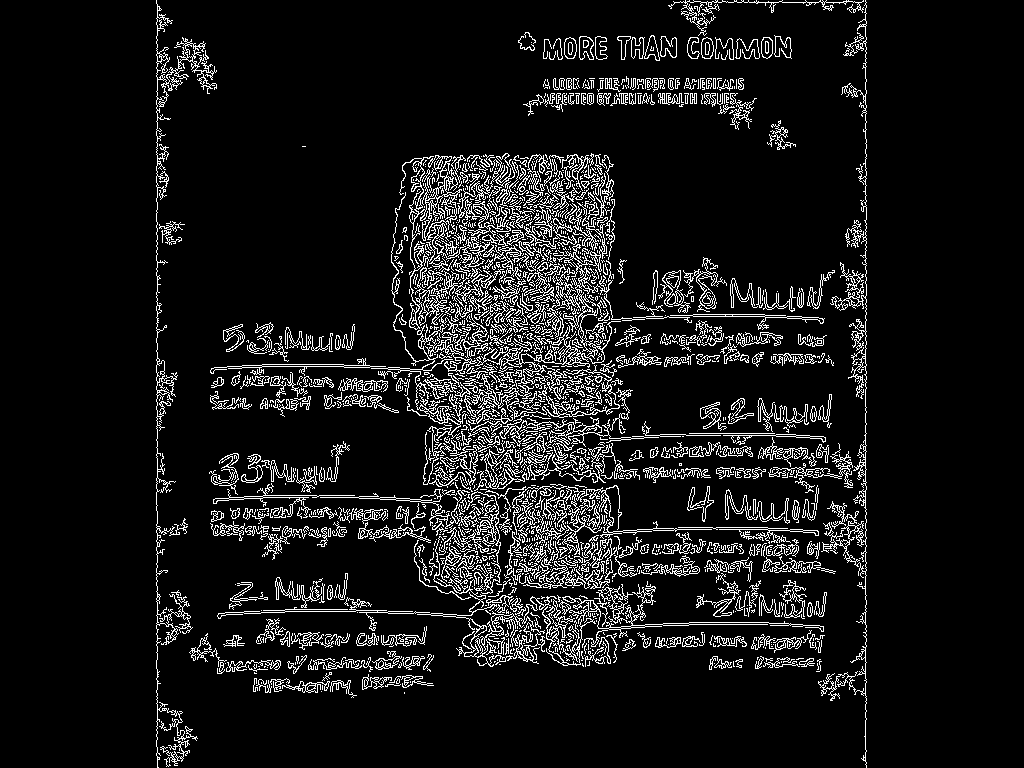 * MORE THAN COMMON
A LOOK AT THE NUMBER OF AMERICANS
AFFECTED BY MENTAL HEALTH ISSUES
18.8 MILLION
# OF AMERICAN ADULTS WHO
SUFFER FROM SOME FORM OF DEPRESSION
5.3 MILLION
# OF AMERICAN ADULTS AFFECTED BY
SOCIAL ANXIETY DISORDER
5.2 MILLION
# OF AMERICAN ADULTS AFFECTED BY
POST TRAUMATIC STRESS DISORDER
3.3 MILLION
# OF AMERICAN ADULTS AFFECTED BY
OBSESSIVE-COMPULSIVE DISORDER
4 MILLION
# OF AMERICAN ADULTS AFFECTED BY
GENERALIZED ANXIETY DISORDER
2 MILLION
# OF AMERICAN CHILDREN
DIAGNOSED W/ ATTENTION-DEFICIT/
HYPER-ACTIVITY DISORDER
2.4 MILLION
# OF AMERICAN ADULTS AFFECTED BY
PANIC DISORDERS